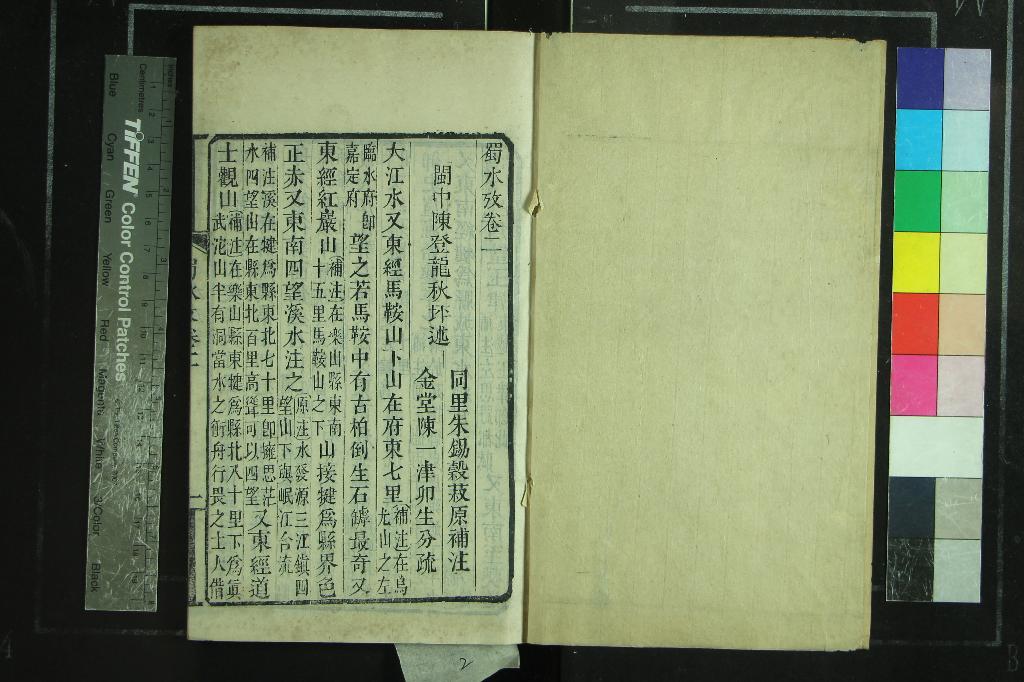 蜀水攷卷二
閩中陳登龍秋坪述
同里朱錫穀菽原補注
金堂陳一津卯生分疏
大江水又東經馬鞍山下山在府東七里補注在烏
尤山之左
臨水府卽
嘉定府
望之若馬鞍中有古柏倒生石罅最奇又
東經紅巖山補注在樂山縣東南
十五里馬鞍山之下
山接犍爲縣界色
正赤又東南四望溪水注之原注水發源三江鎭四
望山下與岷江合流
補注溪在犍爲縣東北七十里卽擁思茫
水四望山在縣東北百里高聳可以四望
又東經道
士觀山補注在樂山縣東犍爲縣北八十里下爲眞
武沱山半有洞當水之衝舟行畏之土人借
蜀水攷卷二
一
Inches
Centimetres
TIFFEN Color Control Patches
Blue
Cyan
Green
Yellow
Red
Magenta
White
3/Color
Black
2